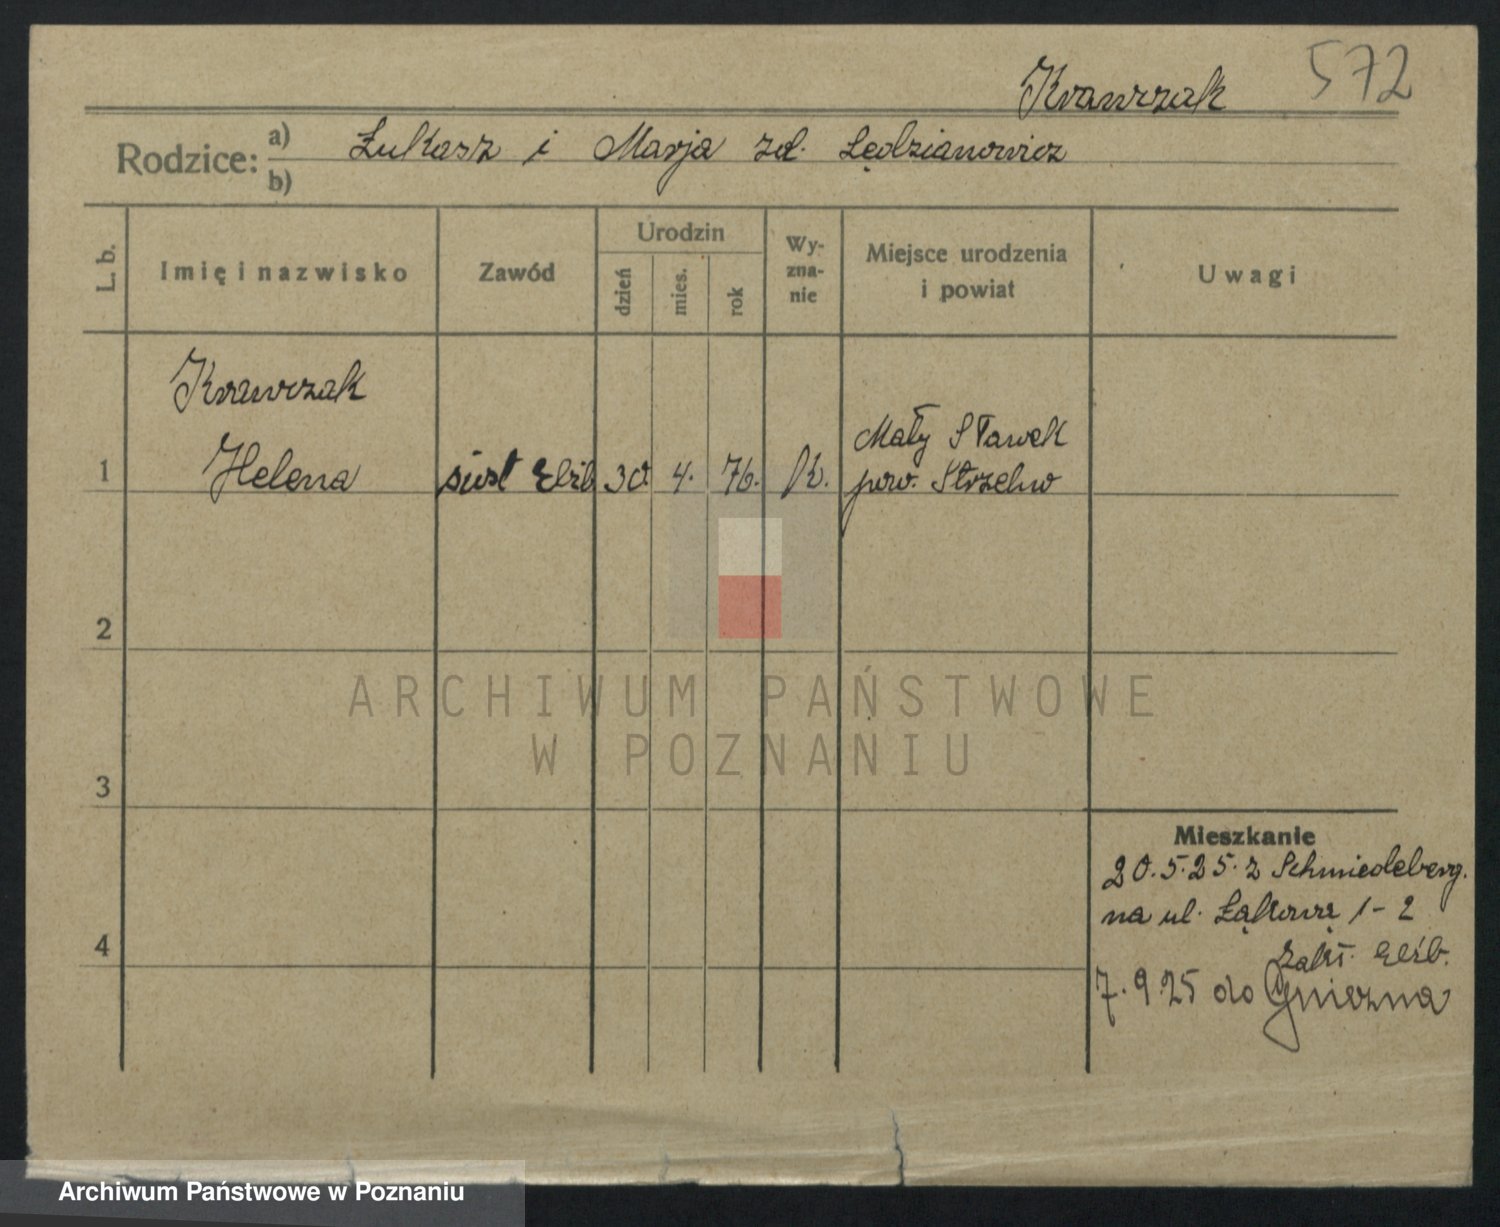 Krawczak 572
Rodzice: a) Łukasz i Marja zd. Lędzianowicz
b)
L. b.
Imię i nazwisko
Zawód
Urodzin
dzień
mies.
rok
Wy-
zna-
nie
Miejsce urodzenia
i powiat
Uwagi
Krawczak
1 Helena siost Elżb 30. 4. 76. K. Mały Sławsk
pow. Strzelno
2
ARCHIWUM PAŃSTWOWE
W POZNANIU
3
Mieszkanie
20.5.25. z Schmiedeberg.
na ul. Łąkową 1-2
4
Zakł. Elżb.
7.9.25 do Gniezna
Archiwum Państwowe w Poznaniu